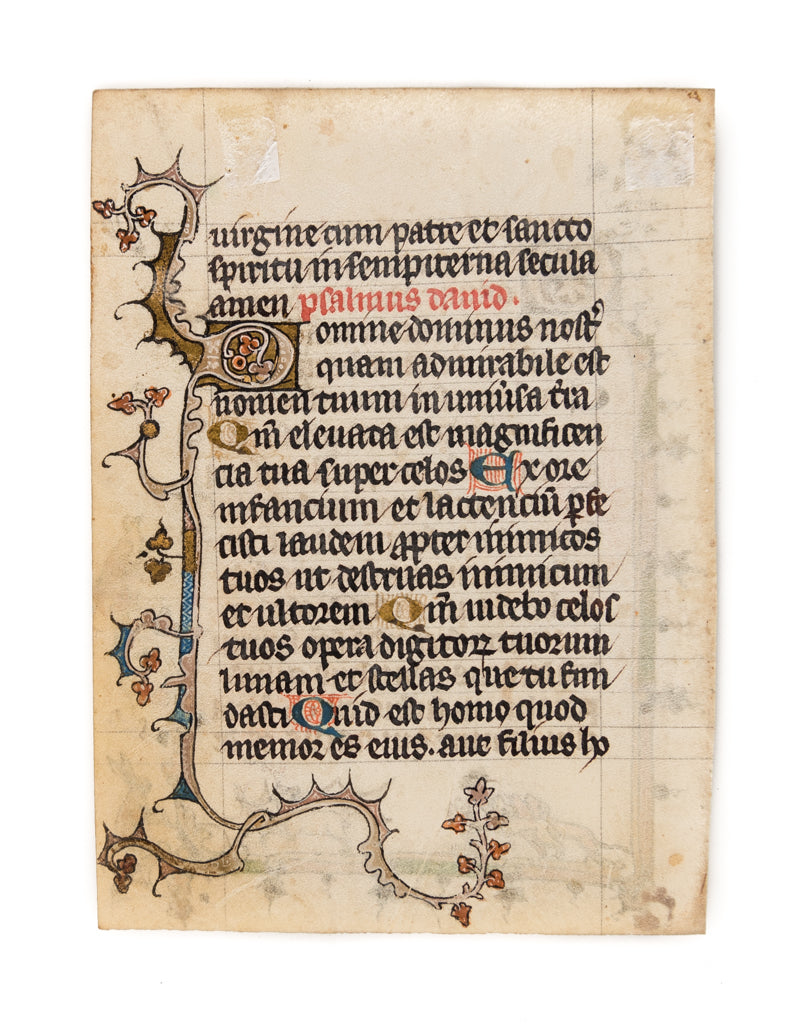 uirgine cum patre et sancto
spiritu in sempiterna secula
amen psalmus dauid.
Domine dominus nostr̾
quam admirabile est
nomen tuum in uniu̾sa t̾ra
Qm̄ eleuata est magnificen
cia tua super celos Ex ore
infancium et lactenciū ꝑfe
cisti laudem ꝓpter inimicos
tuos ut destruas inimicum
et ultorem Qm̄ uidebo celos
tuos opera digitoꝝ tuorum
lunam et stellas que tu fun
dasti Quid est homo quod
memor es eius. aut filius ho